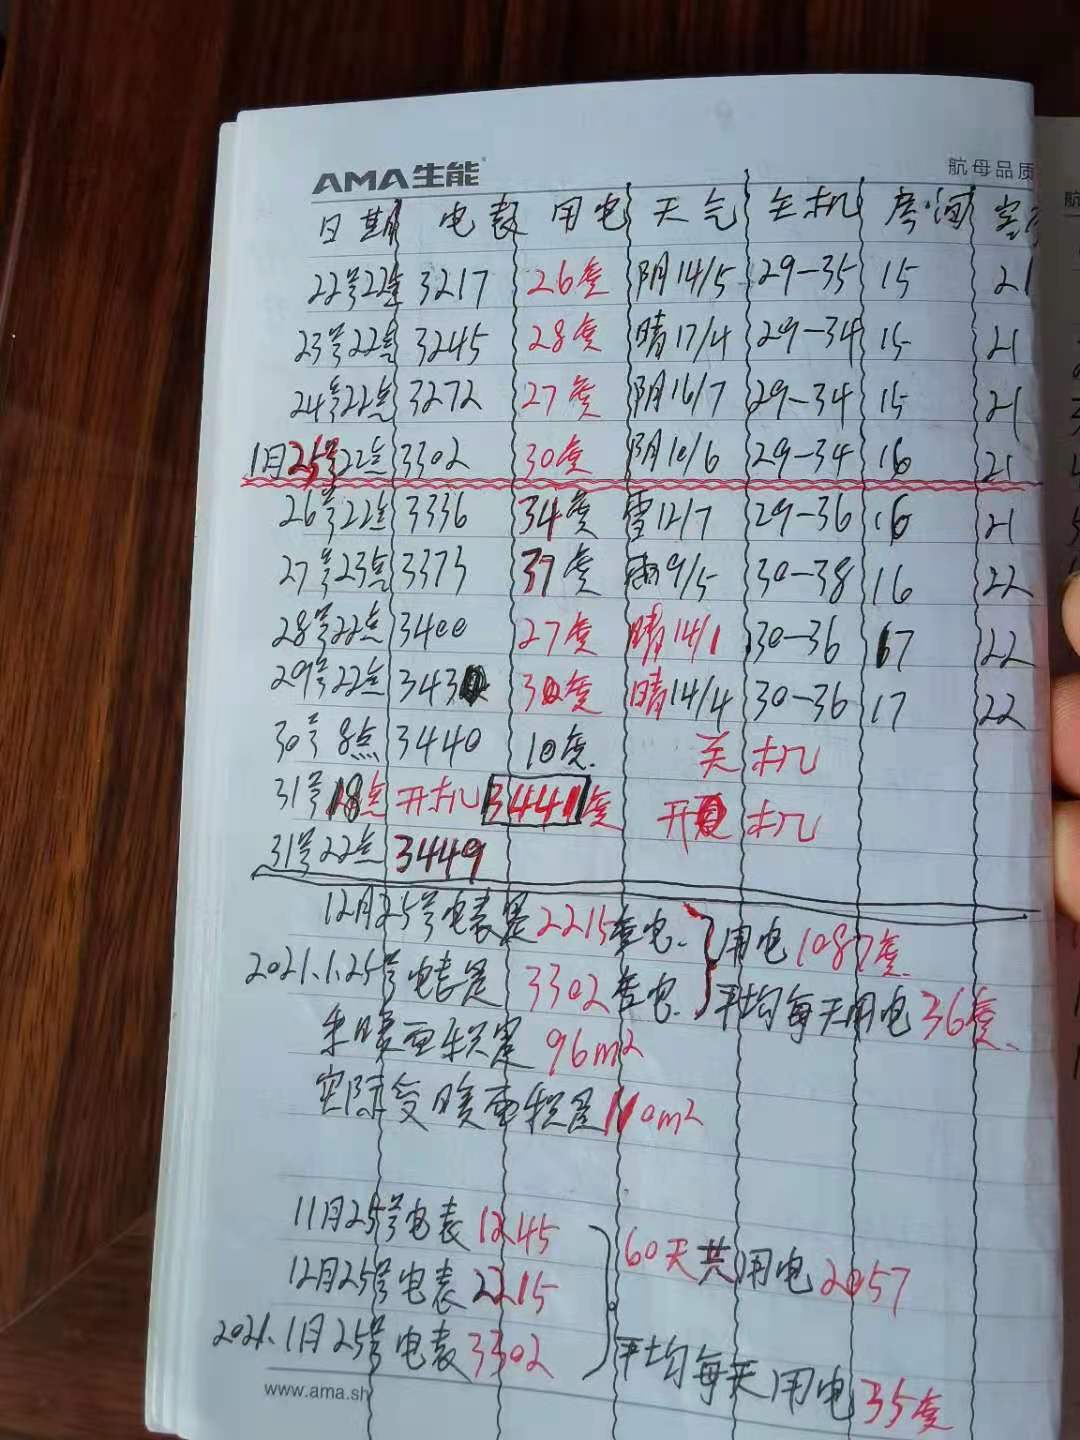 AMA生能 航母品质
日期 电表 用电 天气 主机 房间 客
22号22点 3217 26度 阴14/5 29-35 15 21
23号22点 3245 28度 晴17/4 29-34 15 21
24号22点 3272 27度 阴16/7 29-34 15 21
1月25号22点 3302 30度 阴10/6 29-34 16 21
26号22点 3336 34度 雪12/7 29-36 16 21
27号23点 3373 37度 雨9/5 30-38 16 22
28号22点 3400 27度 晴14/1 30-36 17 22
29号22点 3430 30度 晴14/4 30-36 17 22
30号8点 3440 10度. 关机
31号18点 开机 3441度 开机
31号22点 3449
12月25号电表是2215度电. 用电1087度.
2021.1.25号电表是 3302度电. 平均每天用电36度.
采暖面积是 96m2
实际受暖面积是110m2
11月25号电表1245
12月25号电表2215 60天共用电2057
2021.1月25号电表3302 平均每天用电35度
www.ama.sh